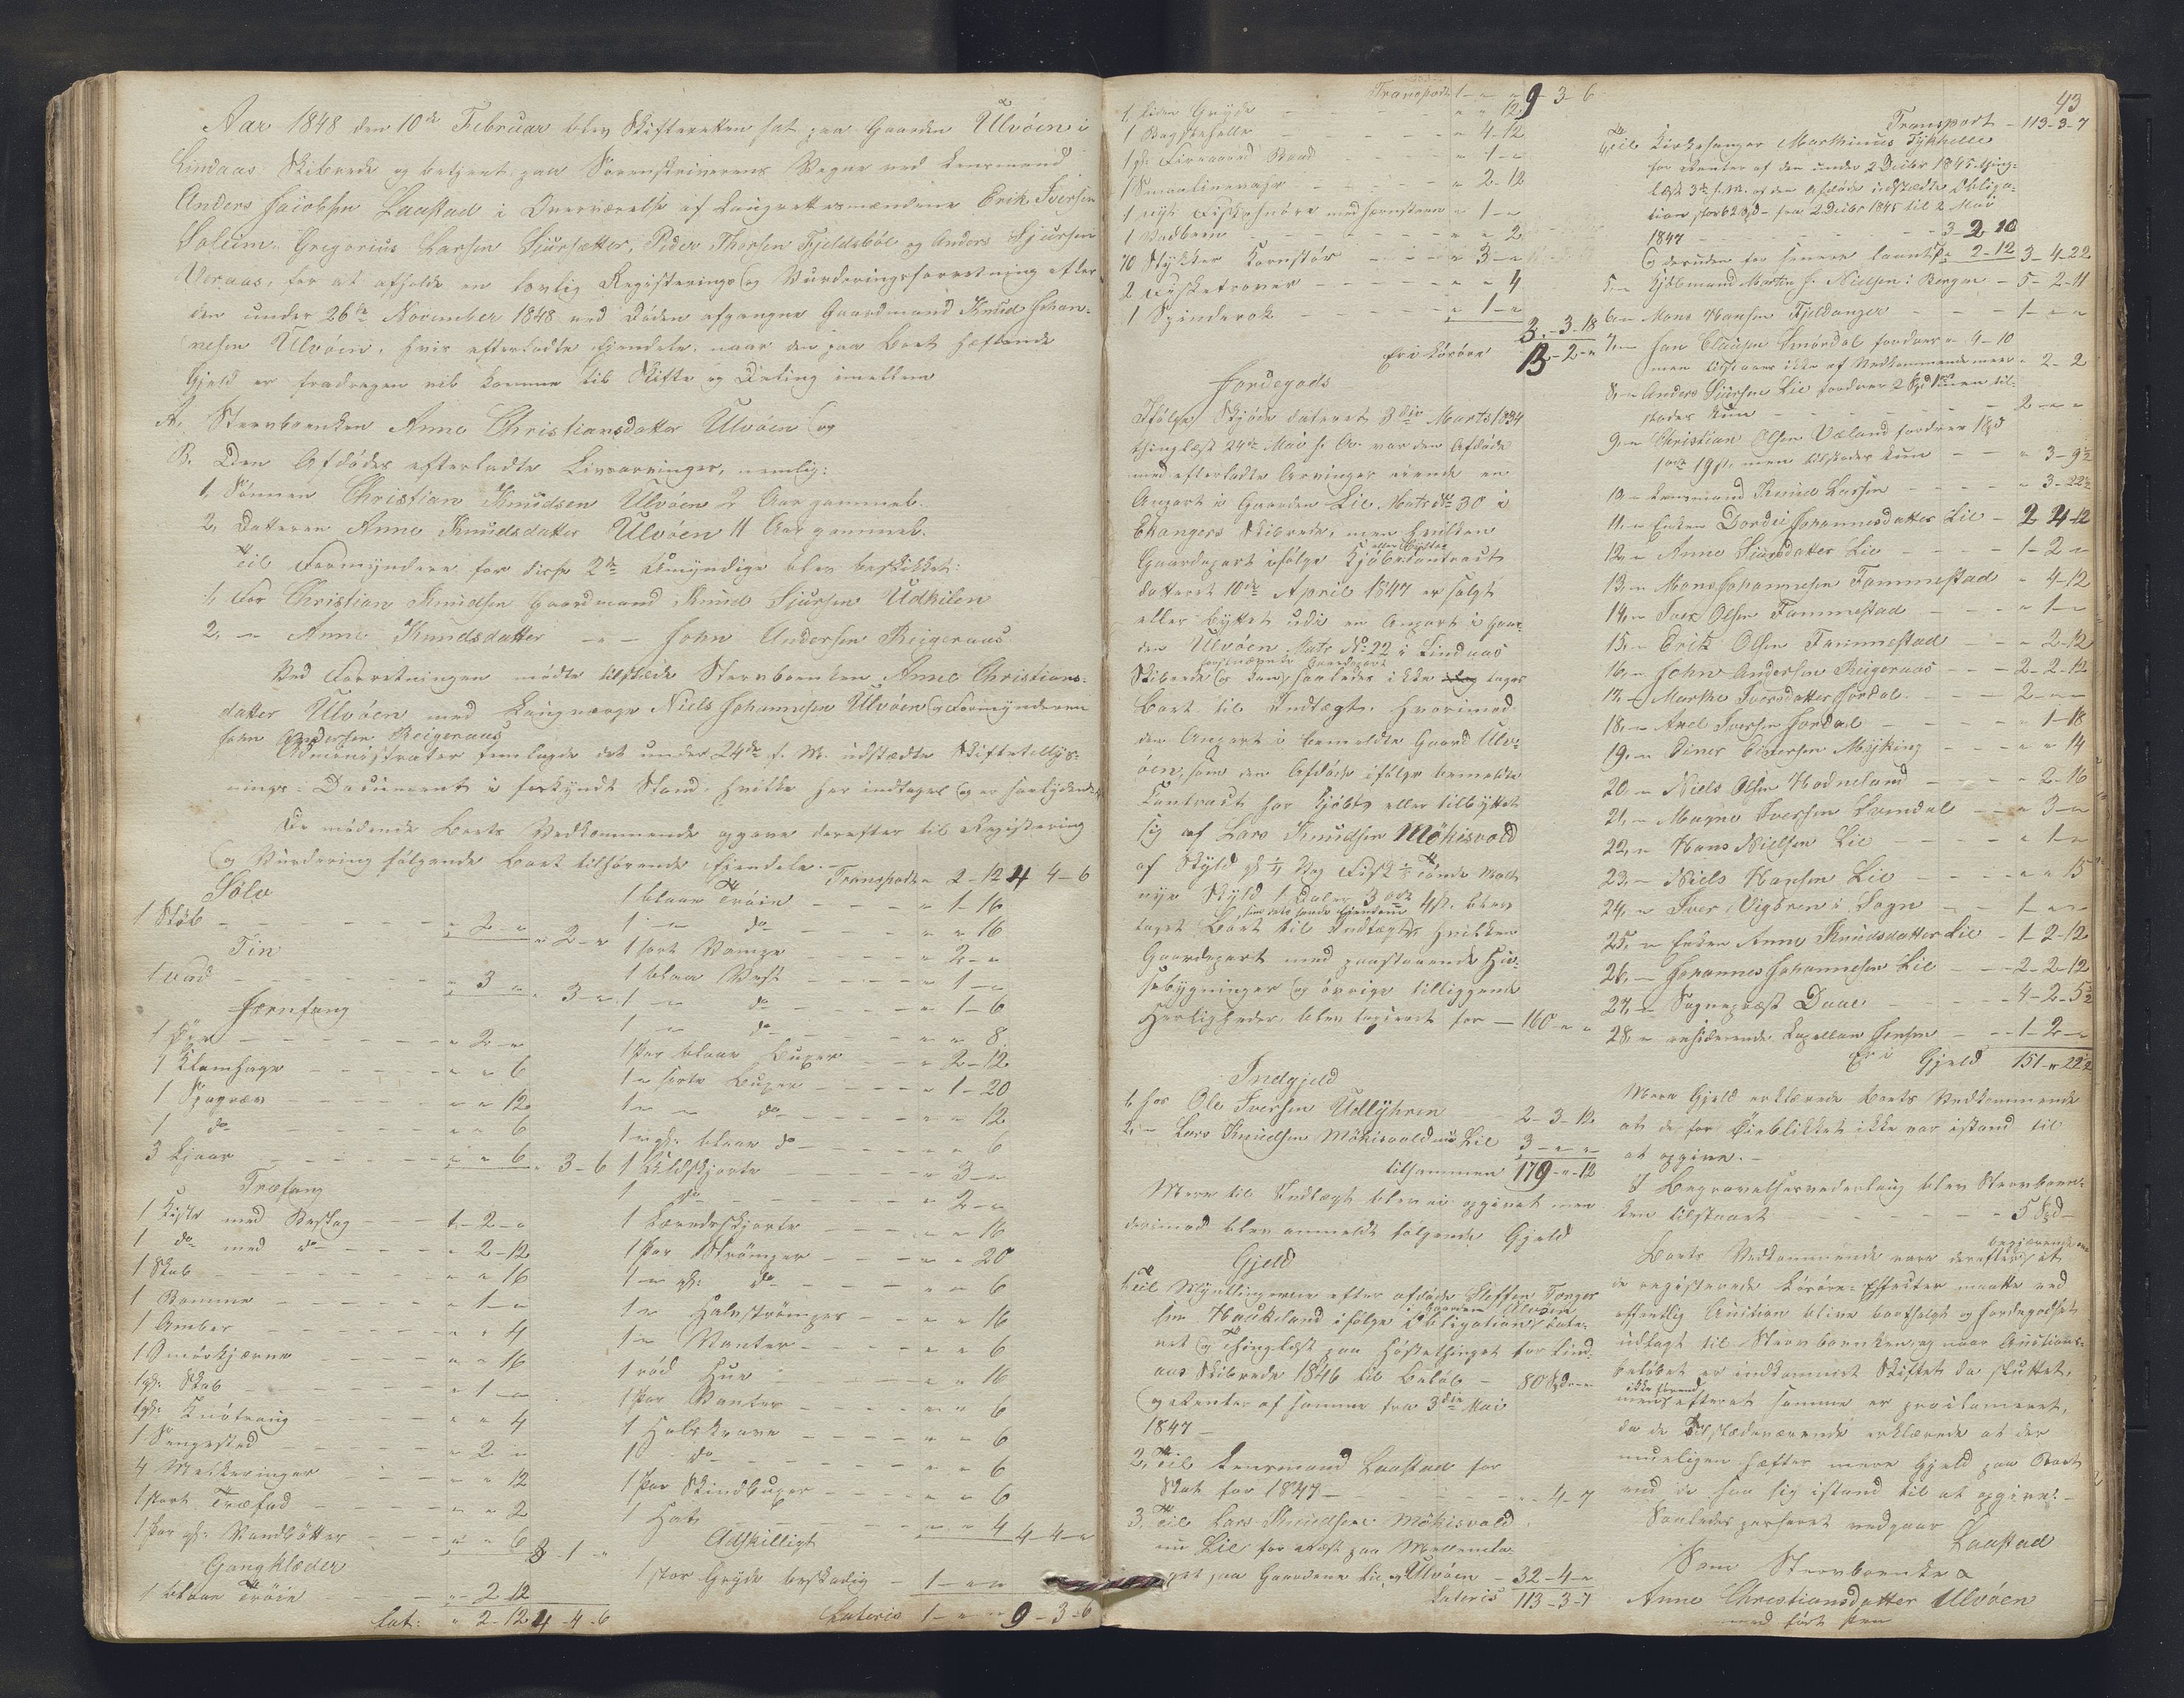 Aar 1848 den 10de Februar blev Skifteretten sat paa Gaarden Ulvöen i
Lindaas Skibrede og betjent paa Sorenskriverens Vegne ved Lensmand
Anders Jacobsen Laastad i Overværelse af Laugrettesmændene Erik Iversen
Solum, Gregorius Larsen Sjursætter, Peder Thorsen Fjeldsböe og Anders Sjursen
for at afholde en lovlig Registerings og Vurderingsforretning efter
den under 26de November 1848 ved Döden afgangne Gaardmand Knud Johan-
nesen Ulvöen, hvis efterladte Eiendele, naar den paa Boet hæftende
Gjeld er fradragen vil komme til Skifte og Deling imellem
A. Stervboenken Anne Christiansdatter Ulvöen og
B. Den Afdödes efterladte Livsarvinger, nemlig:
1, Sönnen Christian Knudsen Ulvöen 2 Aar gammel.
2, Datteren Anne Knudsdatter Ulvöen 11 Aar gammel.
Til Formyndere for disse 2de Umyndige blev beskikket:
1, For Christian Knudsen Gaardmand Knud Sjursen Udkilen
2, – Anne Knudsdatter – „ – John Andersen Reigeraas
Ved Forretningen mödte tilstæde Stervboenken Anne Christians-
datter Ulvöen med Laugværge Niels Johannesen Ulvöen og Formynderen
John Andersen Reigeraas
Administrator fremlagde det under 24de f. M. udstædte Skiftetillys-
nings-Document i forkyndt Stand, hvilke her indtages og er saalydende
De mödende Boets Vedkommende opgave derefter til Registering
og Vurdering fölgende Boet tilhörende Eiendele.
Sölv
1 Stöb – „ 2 – „ „ 2 – „
Tin
1 Fad – „ 3 – „ „ 3 – „
Jernfang
1 – „ 2 – „
1 – „ „ 6
1 – „ „ 12
1 do – „ „ 6
3 Ljaaer – „ „ 6 „ 3 – 6
Træfang
1 Kiste med Beslag – 1 – 2 – „
1 do med do – „ 2 – 12
1 Skab – „ „ 16
1 Bomme – „ 1 – „
1 Amber – „ „ 4
1 Smörkjærne – „ „ 16
1 gl. Skab – „ 1 – „
1 gl. – „ „ 4
1 Sengested – „ 2 – „
4 Melkeringer – „ „ 12
1 Træfad – „ „ 2
1 Par gl. Vandbötter – „ „ 6 3 – 1 – „
Gangklæder
1 blaae Tröie – „ 2 – 12
Lat: „ 2 – 12 4 – 4 – 6
Transport „ 2 – 12 4 4 – 6
1 blaae Tröie – „ 1 – 16
1 – do – „ „ 16
1 sort Vampe – „ 2 – „
1 blaa Vest – „ 1 – „
1 – do – „ 1 – 6
1 – do – „ „ 8
1 Par blaae Buxer – „ 2 – 12
1 – sorte Buxer – „ 1 – 20
1 – do – „ „ 12
1 – gl. blaae do – „ „ 6
1 Uldskjorte – „ 3 – „
1 do – „ 2 – „
1 Lærredsskjorte – „ „ 16
1 Par Strömper – „ „ 20
1 – gl. do – „ „ 6
1 – Halvströmper – „ „ 16
1 – Vanter – „ „ 6
1 röd Hue – „ „ 16
1 Par Vanter – „ „ 6
1 Halskrave – „ „ 6
1 do – „ „ 6
1 Par Skindbuxer – „ „ 6
1 Hat – „ „ 4 4 – 4 – „
Adskilligt
1 stor Gryde beskadig – 1 – „ „
Lateris 1 – „ „ 9 – 3 – 6
Transport 1 – „ „ 9 – 3 – 6
1 liden Gryde – „ „ 12
1 Bagstehelle – „ 4 – 12
1 gl. Baad – „ 1 – „
1 – „ 2 – 12
1 nyt Fiskesnöre med Jernsteen „ 1 – „
1 – „ „ 2
10 Stykker Kornstör – „ 3 – „
2 – „ „ 4
1 Spinderok – „ 1 – „
3 – 3 – 18
Er i Lösöre 13 – 2 – „
Jordegods
Ifölge Skjöde dateret 3die Marts 1834
thinglæst 24de Mai s. A. var den Afdöde
med efterladte Arvinger eiende en
Anpart i Gaarden Lie Matr No 30 i
Ekangers Skibrede, men hvilken
Gaardepart ifölge Kjöbe eller Bytte Contract
dateret 10de April 1847 er solgt
eller byttet udi en Anpart i Gaar-
den Ulvöen Matr No 22 i Lindaas
Skibrede og kan forstnævnte Gaardepart saaledes ikke tages
Boet til Indtægt, hvorimod
den Anpart i bemeldte Gaard Ulv-
öen, som den Afdöde ifölge bemeldte
Contract har kjöbt eller tilbyttet
sig af Lars Knudsen Mökisvold
af Skyld
nye Skyld 1 Daler 3 ort 4 s. blev
taget Boet til Indtægt, hvilken
Gaardepart med paastaaende Huu-
sebygninger og övrige tilliggende
Herligheder, blev taxeret for – 160 – „ „
Indgjeld
1, hos Ole Iversen Udlyhren – 2 – 3 – 12
2, – Lars Knudsen Mökisvold nu Lie 3 – „ „
tilsammen 179 – „ – 12
Mere til Indtægt blev ei opgivet men
derimod blev anmeldt fölgende Gjeld
Gjeld
1, Til Myndlingerne efter afdöde Steffen
Haukeland ifölge Obligation date-
ret og Thinglæst paa Höstethinget for Lind-
aas Skibrede 1846 til Belöb – 80 Spd „ „
og Renter af samme fra 3die Mai
1847 –
2, Til Lensmand Laastad for
Skat for 1847 – „ – 4 – 7
3, Til Lars Knudsen Mökisvold
nu Lie for Rest paa Mellemla-
get paa Gaardene Lie og Ulvöen – 32 – 4 – „
Lateris 113 – 3 – 7
43
Transport – 113 – 3 – 7
4, Til Kirkesanger Marthinus Tykkhelle
for Renter af den under 2 Decbr 1845 thing-
læst 3de s. M. af den Afdöde udstædte Obliga-
tion stor 62 Spd – fra 2 Decbr 1845 til 2 Mai
1847 – 3 – 2 – 10
og desuden for senere laant „ 2 – 12 3 – 4 – 22
5, – Kjöbmand Martin J. Nielsen i Bergen – 5 – 2 – 11
6, – Mons Hansen Fjeldanger – 1 – „ „
7, – Jan Clausen Smördal fordrer „ 4 – 10
men tilstaaes ikke af Vedkommende meer „ 2 – 2
8, – Anders Sjursen Lie fordrer 2 Spd men til-
stodes kun – 2 – „ „
9, – Christian Olsen Væland fordrer 1 Spd
1 ort 19 s. men tilstodes kun – „ 3 – 9½
10, – Lensmand Knud Lassen – „ 3 – 22½
11, – Enken Dordei Johannesdatter Lie – 2 4 – 12
12, – Anne Sjursdatter Lie – 1 – 2 – „
13, – Mons Johannesen Fammestad „ 4 – 12
14, – Iver Olsen Fammestad – „ 1 – „
15, – Erik Olsen Fammestad – „ 2 – 12
16, – John Andersen Reigeraas – 2 – 2 – 12
17, – Marthe Iversdatter Jordal – 2 – „ „
18, – Axel Iversen Jordal – „ 1 – 18
19, – Einer Myking – „ „ 14
20, – Niels Olsen Hodneland – „ 2 – 16
21, – Magne Iversen – „ 3 – „
22, – Hans Nielsen Lie – „ 1 – „
23, – Niels Hansen Lie – „ „ 15
24, – Iver i Sogn – 1 – „ „
25, – Enken Anne Knudsdatter Lie – 1 – 2 – 12
26, – Johannes Johannesen Lie – 2 – 2 – 12
27, – Sognepræst Daae – 4 – 2 – 5½
28, – residerende Capellan Jensen – 1 – 2 – „
Er i Gjeld 151 – „ 22½
Mere Gjeld erklærede Boets Vedkommende
at de for Öieblikket ikke var istand til
at opgive. –
I Begravelsesvederlaug blev Stervboen-
ken tilstaaet – 5 Spd –
Boets Vedkommende vare derefter begjærende at
de registrerede Lösöre-Effecter maatte ved
offentlig Auction blive bortsolgt og Jordegodset
udlagt til Stervboenken, og naar Auctions-
belöbet er indkommet Skiftet da sluttet,
men ikke förend efterat samme er proclameret,
da de Tilstædeværende erklærede at der
mueligen hæfter mere Gjeld paa Boet
end de saa sig istand til at opgive. –
Saaledes passeret vedgaaer
Laastad
Som Stervboenke
Anne Christiansdatter Ulvöen
med fört Pen